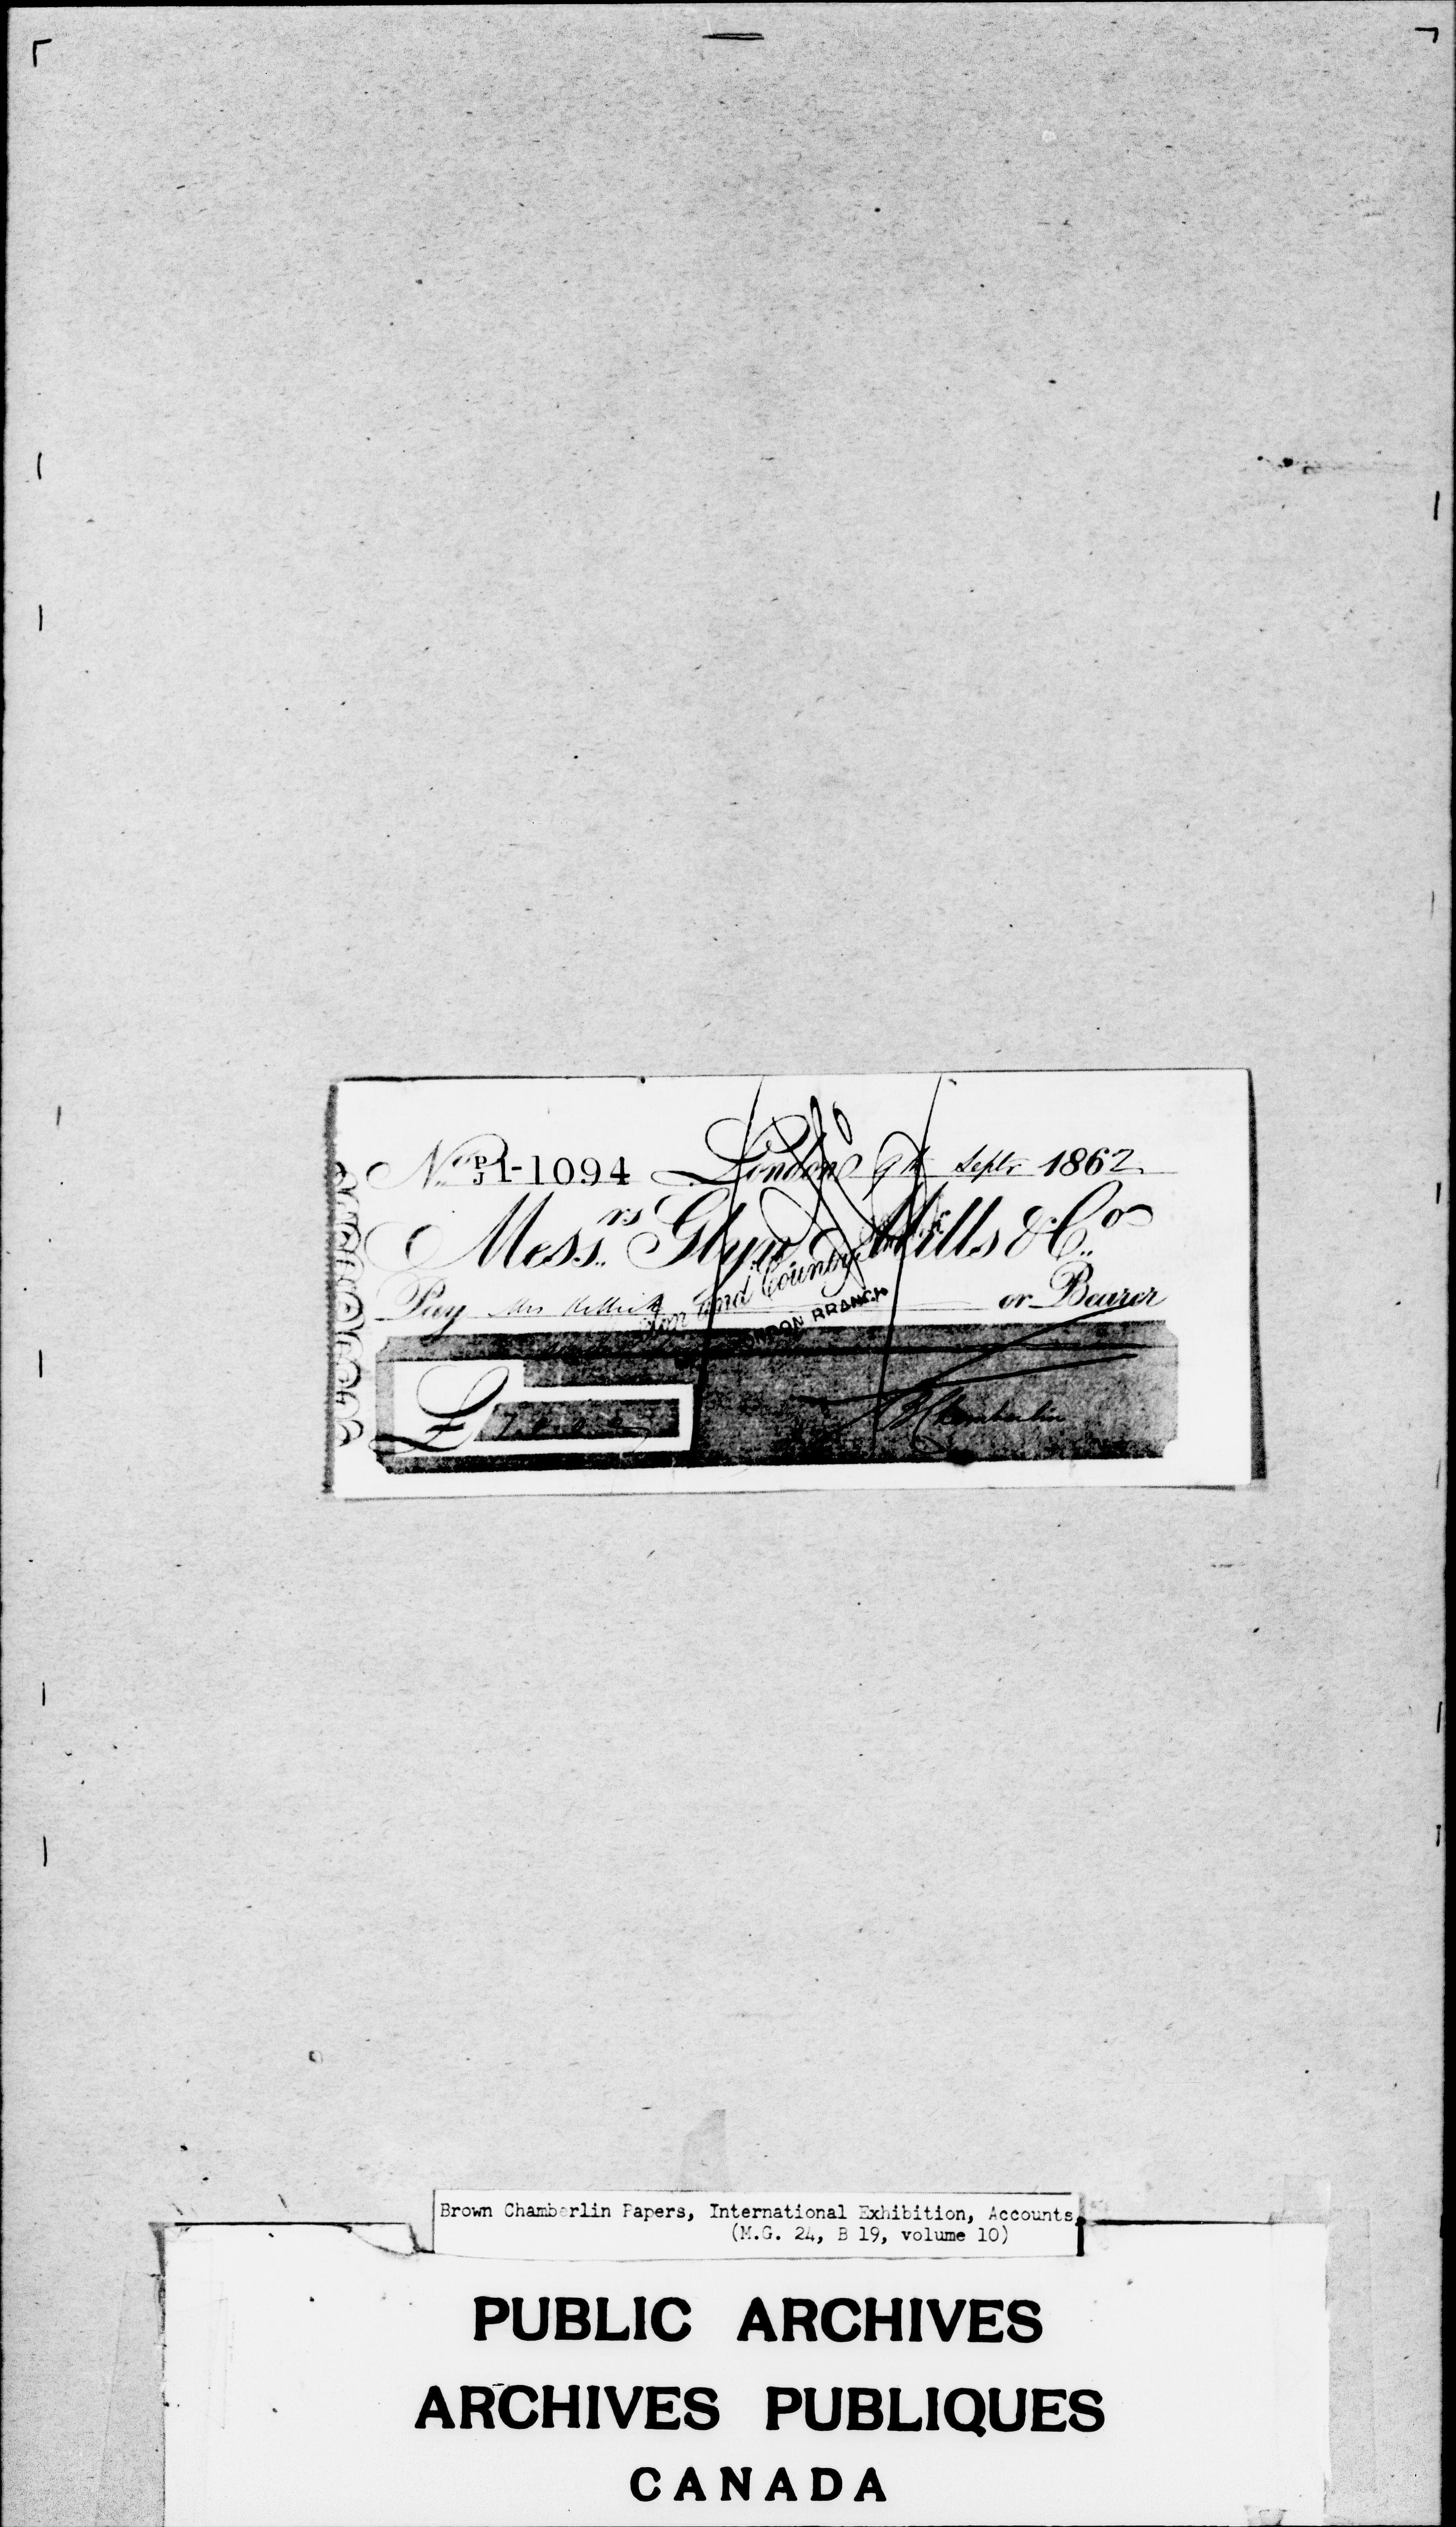 No. P/J 1-1094 London 9th Septr 1862
Messrs. Glyn Mills & Co.
Pay Mrs or Bearer
and County
LONDON BRANCH
£7
B Chamberlin
Brown Chamberlin Papers, International Exhibition, Accounts,
(M.G. 24, B 19, volume 10)
PUBLIC ARCHIVES
ARCHIVES PUBLIQUES
CANADA